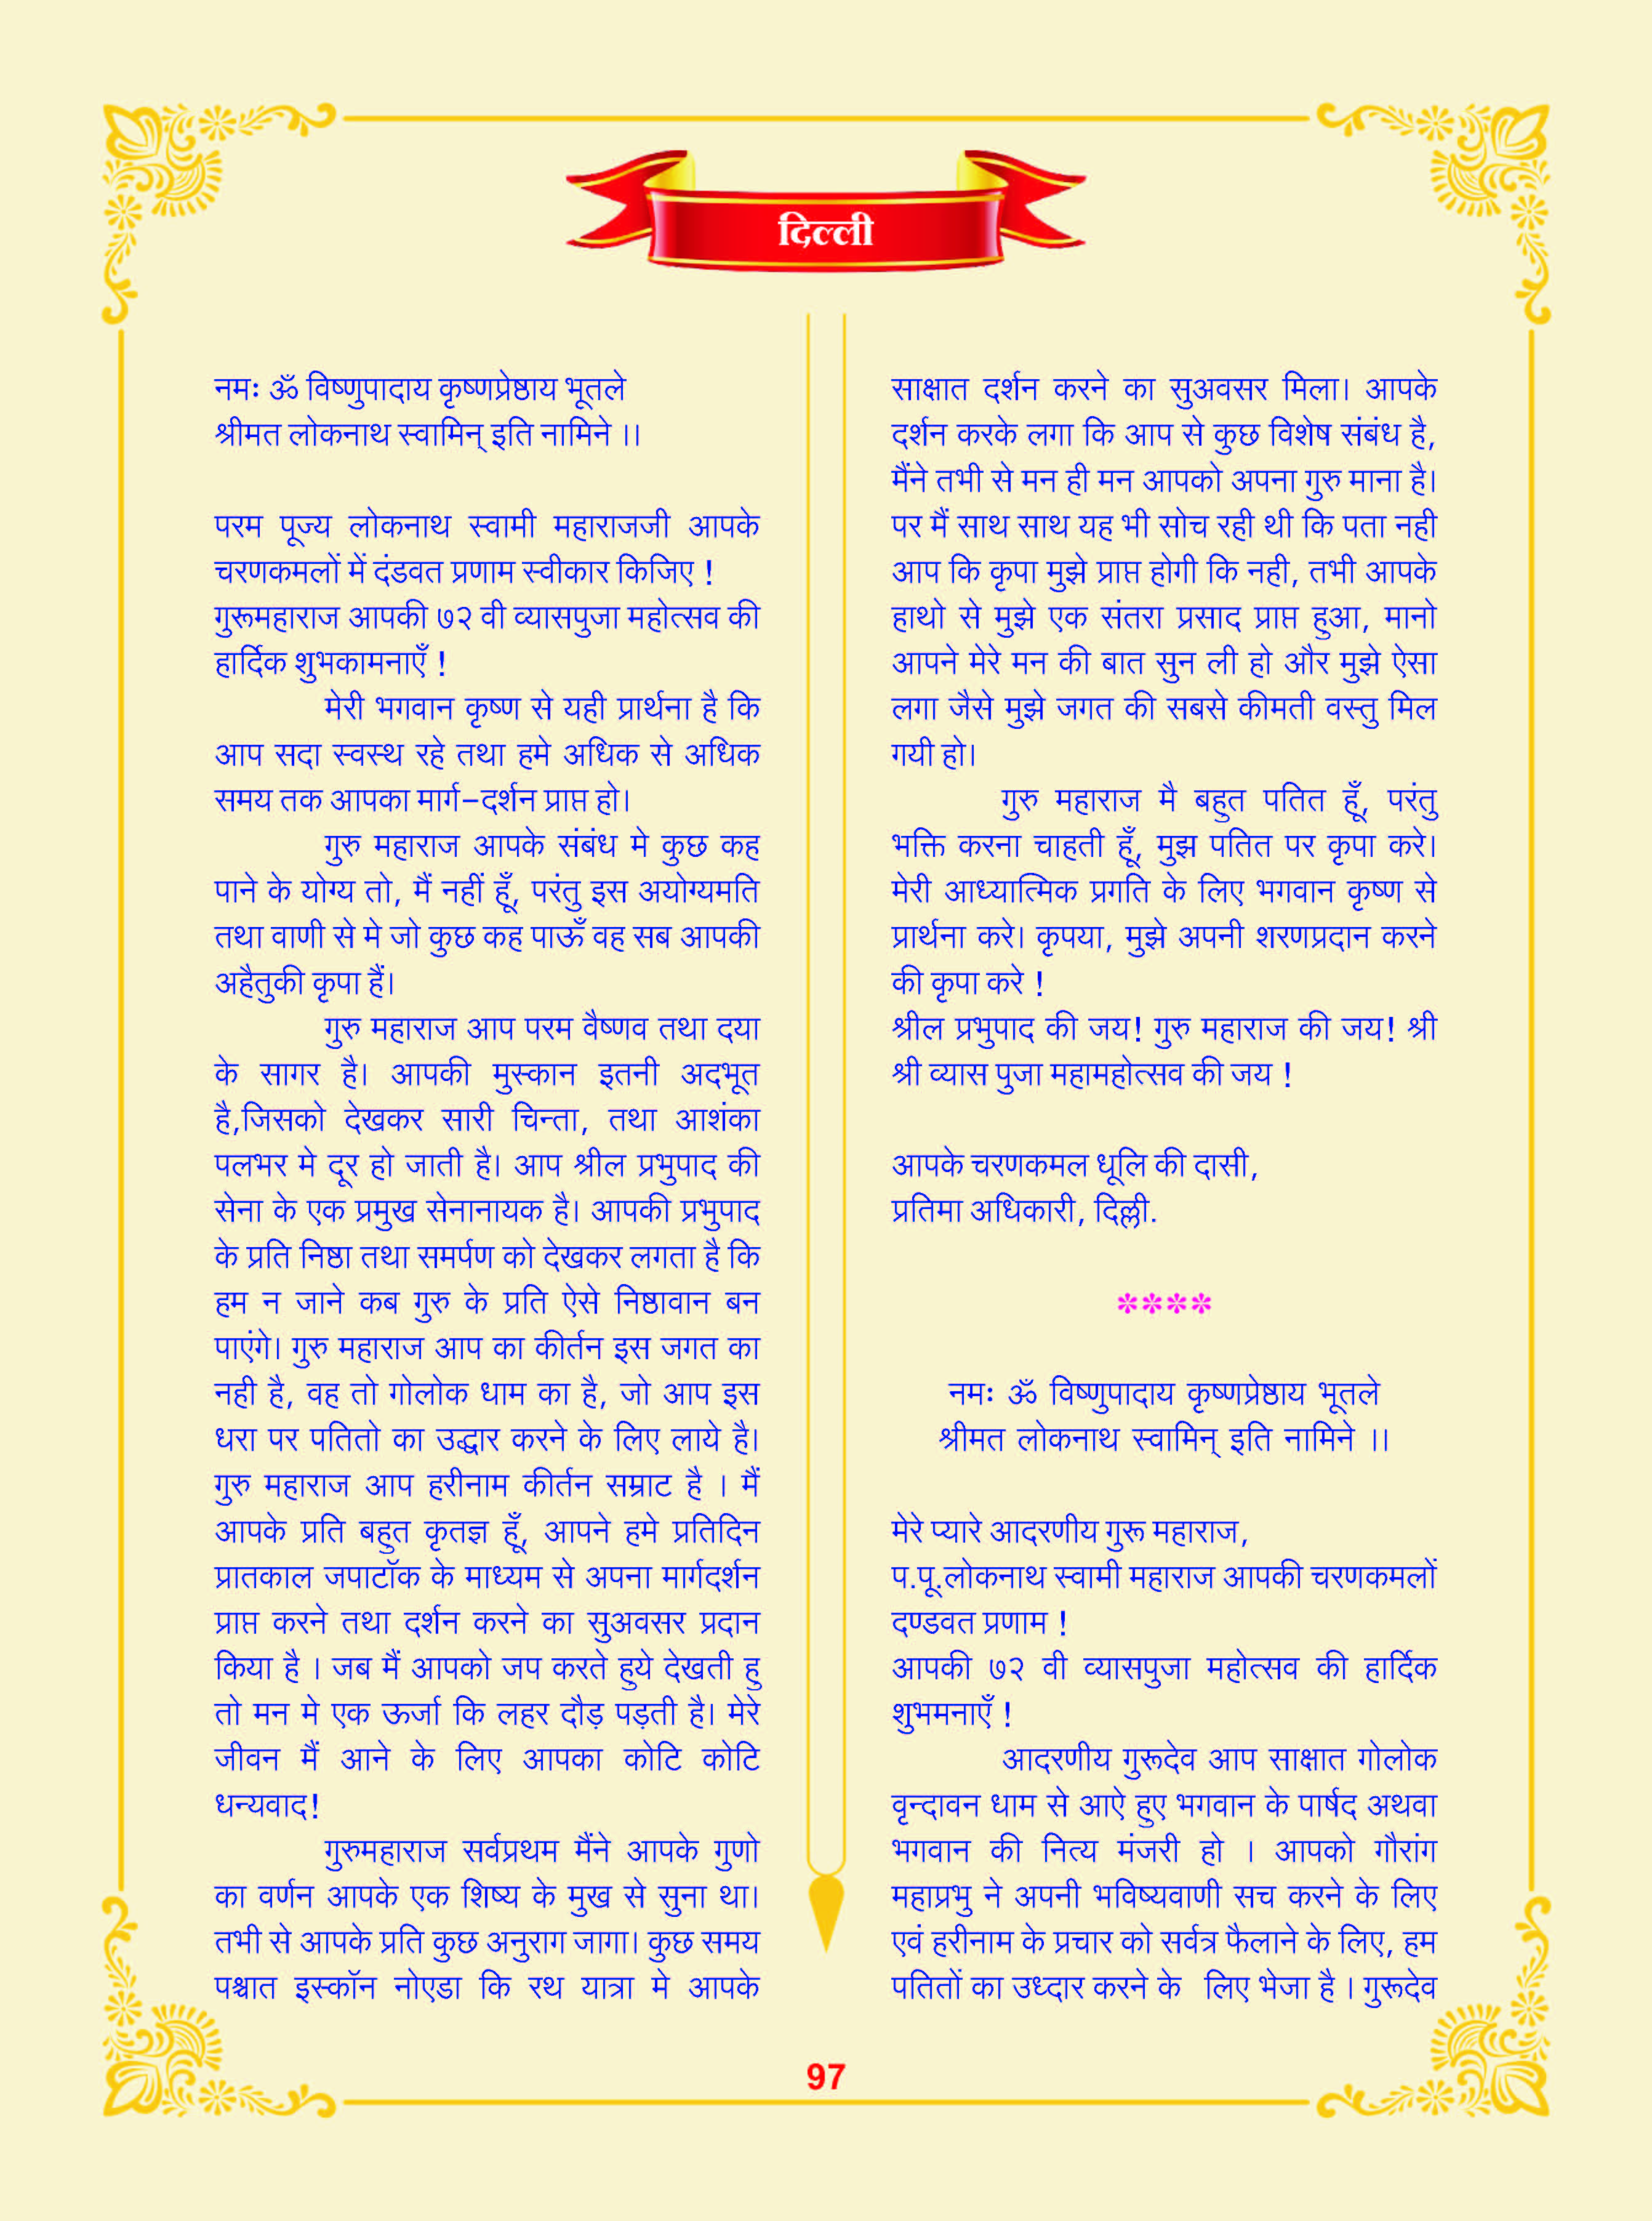 दिल्ली
नमः ॐ विष्णुपादाय कृष्णप्रेष्ठाय भूतले
श्रीमत लोकनाथ स्वामिन् इति नामिने ।।
परम पूज्य लोकनाथ स्वामी महाराजजी आपके
चरणकमलों में दंडवत प्रणाम स्वीकार किजिए !
गुरूमहाराज आपकी ७२ वी व्यासपुजा महोत्सव की
हार्दिक शुभकामनाएँ !
मेरी भगवान कृष्ण से यही प्रार्थना है कि
आप सदा स्वस्थ रहे तथा हमे अधिक से अधिक
समय तक आपका मार्ग-दर्शन प्राप्त हो।
गुरु महाराज आपके संबंध मे कुछ कह
पाने के योग्य तो, मैं नहीं हूँ, परंतु इस अयोग्यमति
तथा वाणी से मे जो कुछ कह पाऊँ वह सब आपकी
अहैतुकी कृपा हैं।
गुरु महाराज आप परम वैष्णव तथा दया
के सागर है। आपकी मुस्कान इतनी अदभूत
है,जिसको देखकर सारी चिन्ता, तथा आशंका
पलभर मे दूर हो जाती है। आप श्रील प्रभुपाद की
सेना के एक प्रमुख सेनानायक है। आपकी प्रभुपाद
के प्रति निष्ठा तथा समर्पण को देखकर लगता है कि
हम न जाने कब गुरु के प्रति ऐसे निष्ठावान बन
पाएंगे। गुरु महाराज आप का कीर्तन इस जगत का
नही है, वह तो गोलोक धाम का है, जो आप इस
धरा पर पतितो का उद्धार करने के लिए लाये है।
गुरु महाराज आप हरीनाम कीर्तन सम्राट है । मैं
आपके प्रति बहुत कृतज्ञ हूँ, आपने हमे प्रतिदिन
प्रातकाल जपाटॉक के माध्यम से अपना मार्गदर्शन
प्राप्त करने तथा दर्शन करने का सुअवसर प्रदान
किया है । जब मैं आपको जप करते हुये देखती हु
तो मन मे एक ऊर्जा कि लहर दौड़ पड़ती है। मेरे
जीवन मैं आने के लिए आपका कोटि कोटि
धन्यवाद!
गुरुमहाराज सर्वप्रथम मैंने आपके गुणो
का वर्णन आपके एक शिष्य के मुख से सुना था।
तभी से आपके प्रति कुछ अनुराग जागा। कुछ समय
पश्चात इस्कॉन नोएडा कि रथ यात्रा मे आपके
साक्षात दर्शन करने का सुअवसर मिला। आपके
दर्शन करके लगा कि आप से कुछ विशेष संबंध है,
मैंने तभी से मन ही मन आपको अपना गुरु माना है।
पर मैं साथ साथ यह भी सोच रही थी कि पता नही
आप कि कृपा मुझे प्राप्त होगी कि नही, तभी आपके
हाथो से मुझे एक संतरा प्रसाद प्राप्त हुआ, मानो
आपने मेरे मन की बात सुन ली हो और मुझे ऐसा
लगा जैसे मुझे जगत की सबसे कीमती वस्तु मिल
गयी हो।
गुरु महाराज मै बहुत पतित हूँ, परंतु
भक्ति करना चाहती हूँ, मुझ पतित पर कृपा करे।
मेरी आध्यात्मिक प्रगति के लिए भगवान कृष्ण से
प्रार्थना करे। कृपया, मुझे अपनी शरणप्रदान करने
की कृपा करे !
श्रील प्रभुपाद की जय! गुरु महाराज की जय! श्री
श्री व्यास पुजा महामहोत्सव की जय !
आपके चरणकमल धूलि की दासी,
प्रतिमा अधिकारी, दिल्ली.
****
नमः ॐ विष्णुपादाय कृष्णप्रेष्ठाय भूतले
श्रीमत लोकनाथ स्वामिन् इति नामिने ।।
मेरे प्यारे आदरणीय गुरू महाराज,
प.पू.लोकनाथ स्वामी महाराज आपकी चरणकमलों
दण्डवत प्रणाम !
आपकी ७२ वी व्यासपुजा महोत्सव की हार्दिक
शुभमनाएँ !
आदरणीय गुरूदेव आप साक्षात गोलोक
वृन्दावन धाम से आऐ हुए भगवान के पार्षद अथवा
भगवान की नित्य मंजरी हो । आपको गौरांग
महाप्रभु ने अपनी भविष्यवाणी सच करने के लिए
एवं हरीनाम के प्रचार को सर्वत्र फैलाने के लिए, हम
पतितों का उध्दार करने के लिए भेजा है । गुरूदेव
97